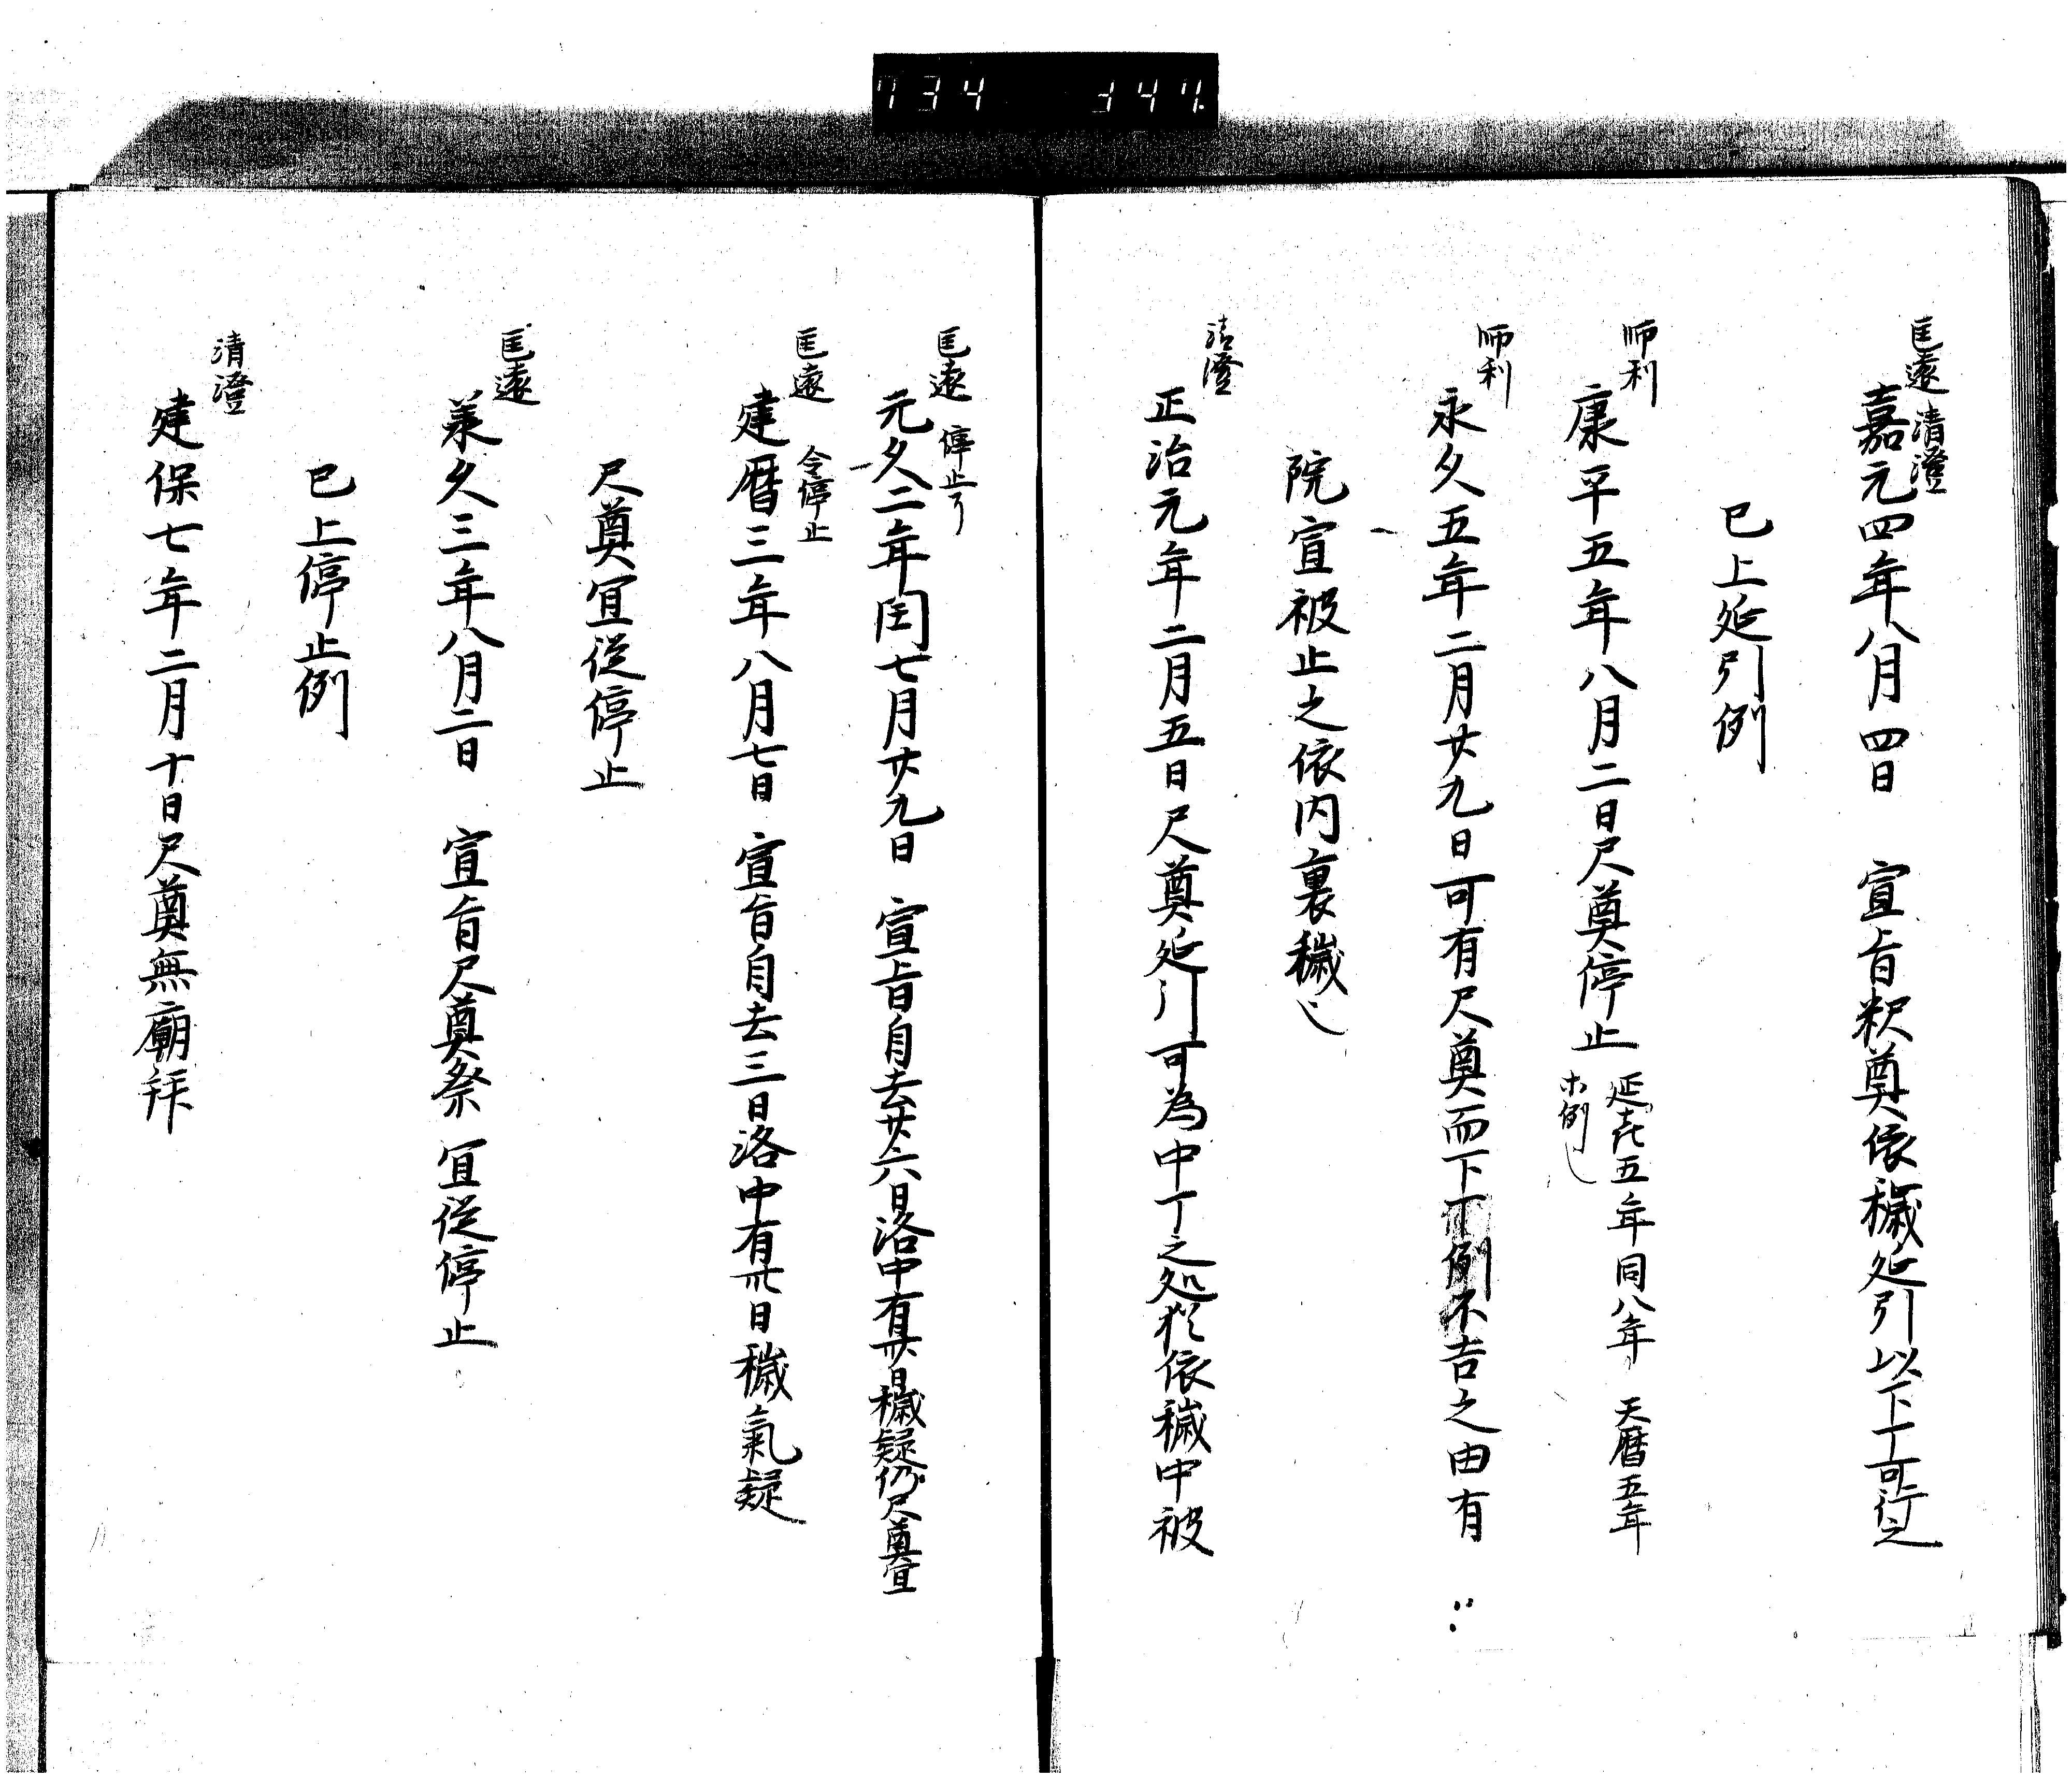 734 344
匡遠 清澄
嘉元四年八月四日 宣旨釈奠依穢延引以下丁可行之
已上延引例
師利
康平五年八月二日尺奠停止 延喜五年同八年 天暦五年
ホ例
師利
永久五年二月廿九日可有尺奠而下丁例不吉之由有
院宣被止之依内裏穢也
清澄
正治元年二月五日尺奠延引可為中丁之処猶依穢中被
匡遠 停止了
元久二年閏七月廿九日 宣旨自去廿六日洛中有卅日穢疑仍尺奠宜
匡遠 令停止
建暦三年八月七日 宣旨自去三日洛中有卅日穢氣疑
尺奠宜従停止
匡遠
承久三年八月二日 宣旨尺奠祭宜従停止
已上停止例
清澄
建保七年二月十日尺奠無廟拜